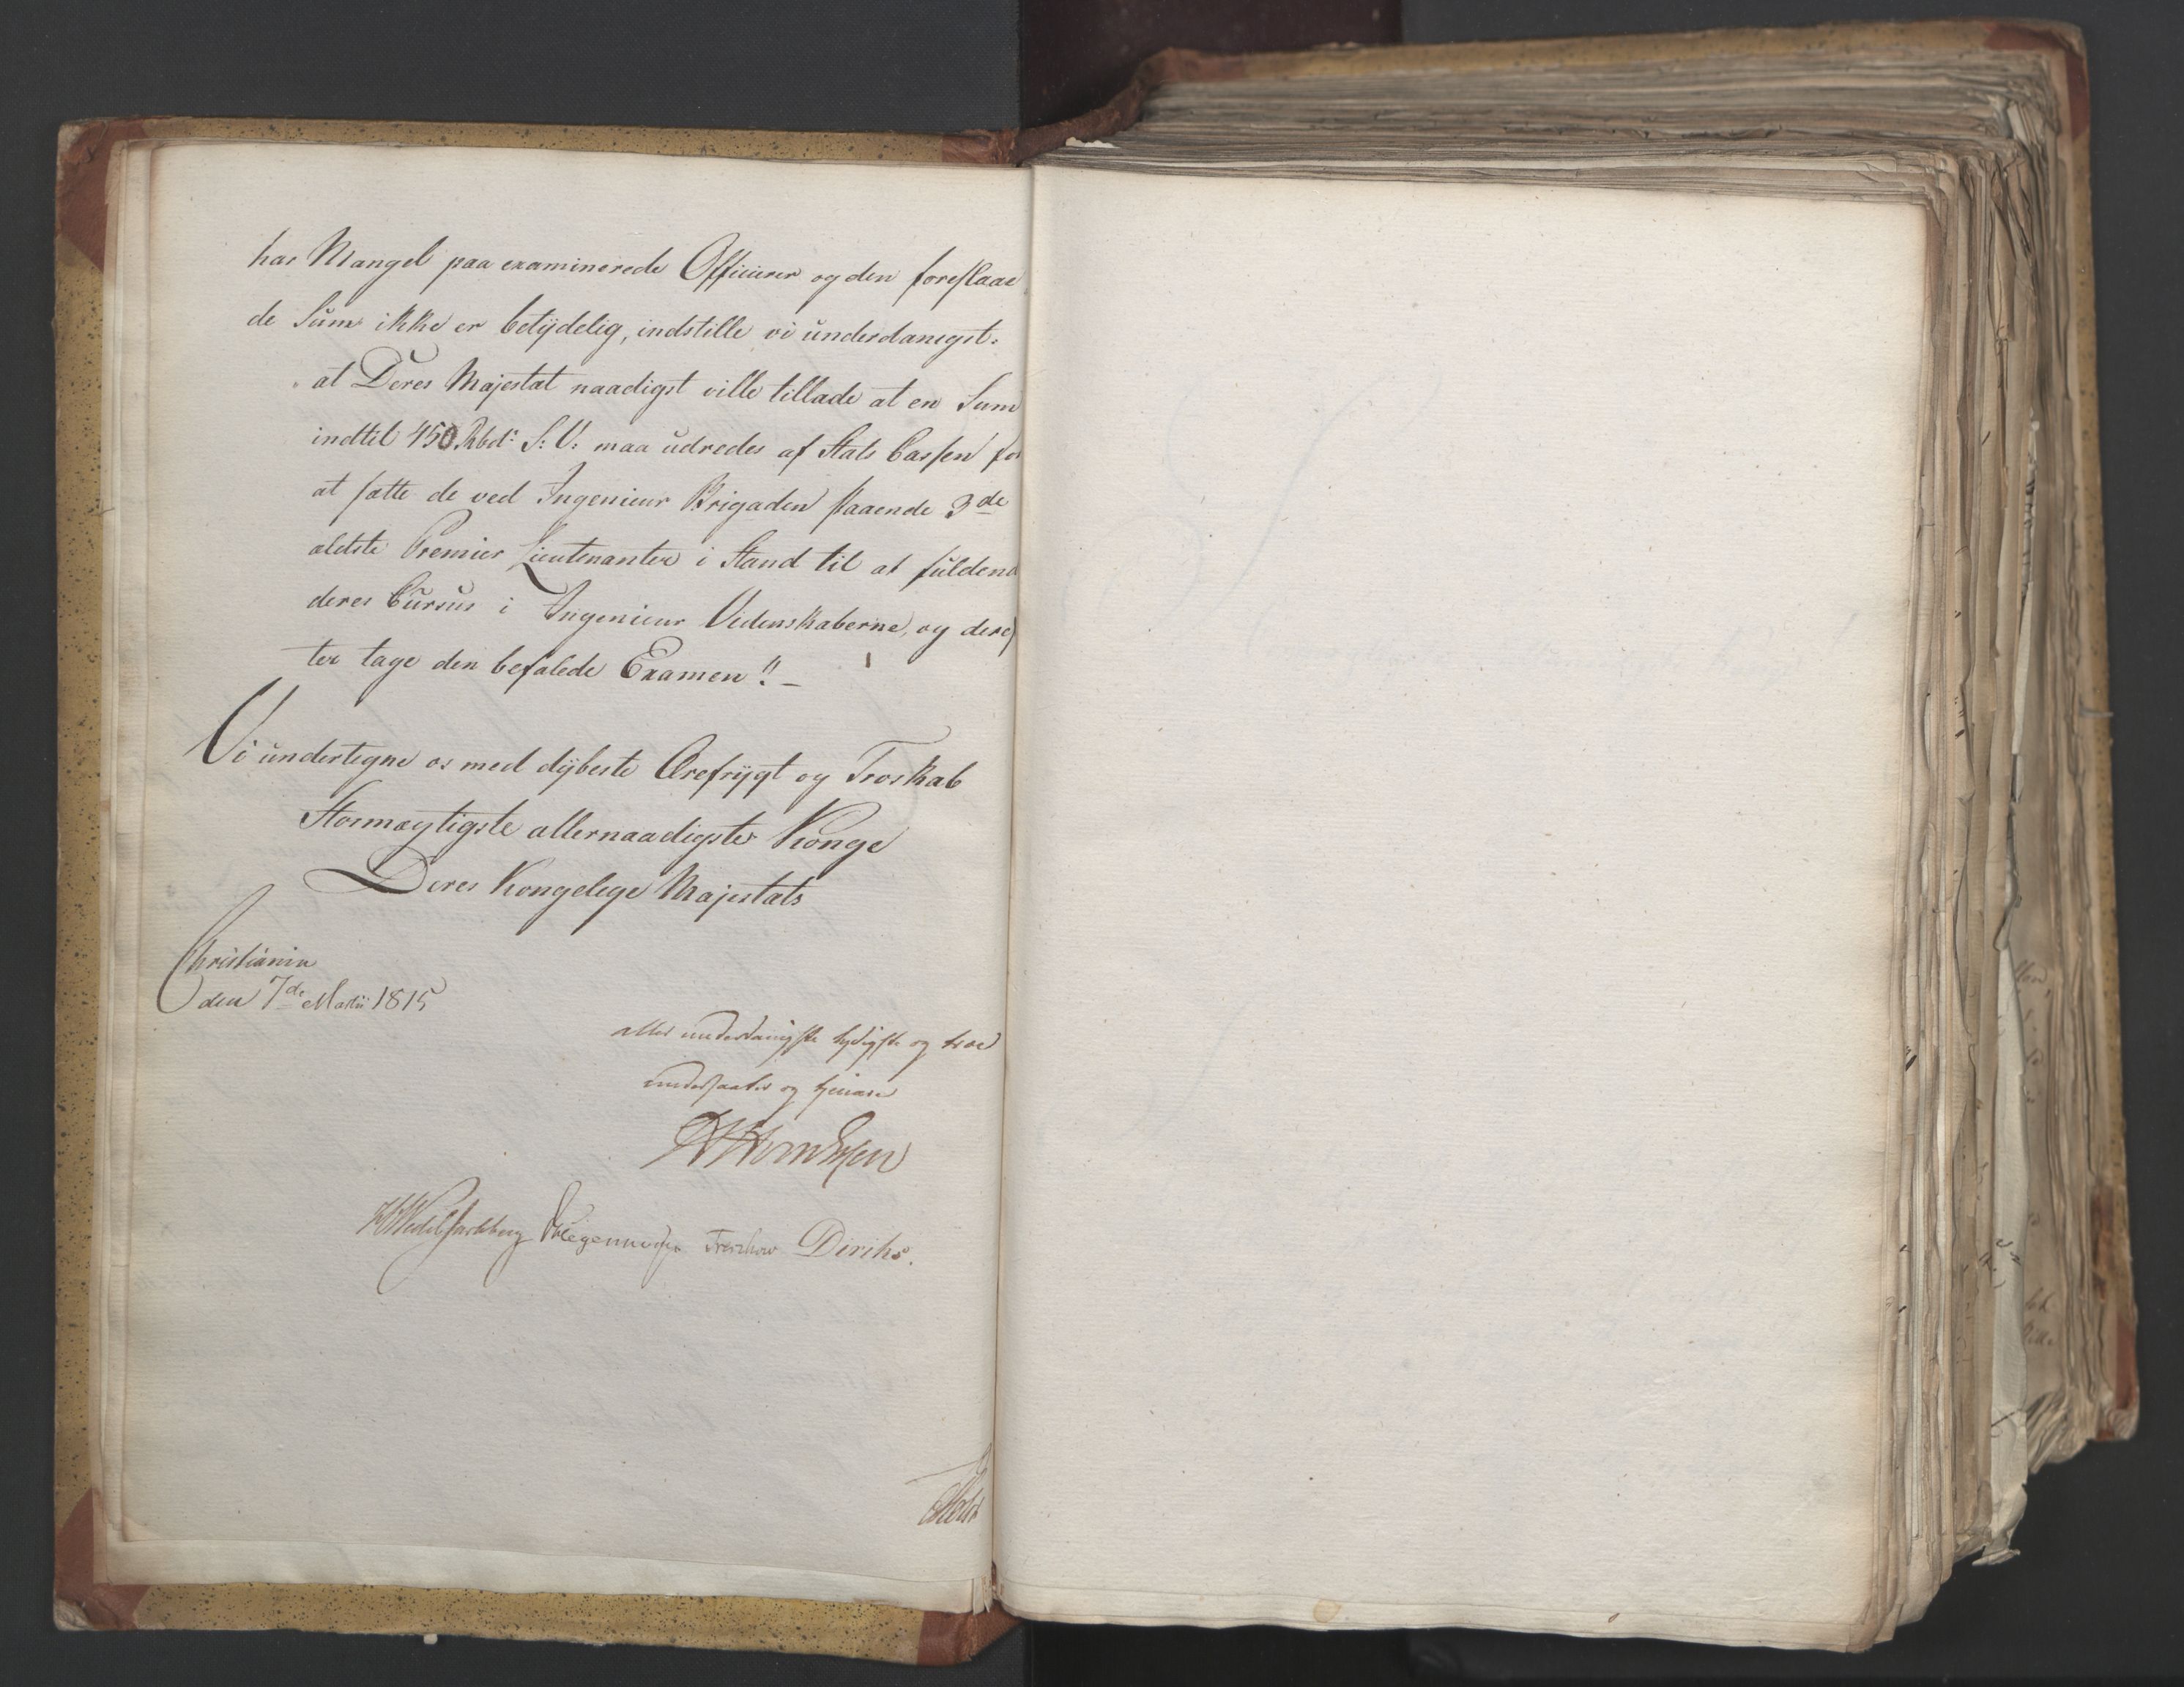 har Mangel paa examinerede Officierer og den foreslaae
de Sum ikke er betÿdelig, indstille vi underdanigst:
at Deres Majestæt naadigst ville tillade at en Sum
indtil 450 Rbd: S: V: maa udredes af Stats Cassen for
at sætte de ved Ingenieur Brigaden staaende 3de
ældste Premier Lieutenanter i Stand til at fuldend
deres Cursus i Ingenieur Videnskaberne, og deref
ter tage den befalede Examen!! –
Vi undertegne os med dÿbeste Ærefrÿgt og Troskab
Stormægtigste allernaadigste Konge
Deres Kongelige Majestæts
Christiania
den 7de Martii 1815
aller underdanigste lydigste og troe
undersaatter og tjenere
Hegermann Treschow Diriks.